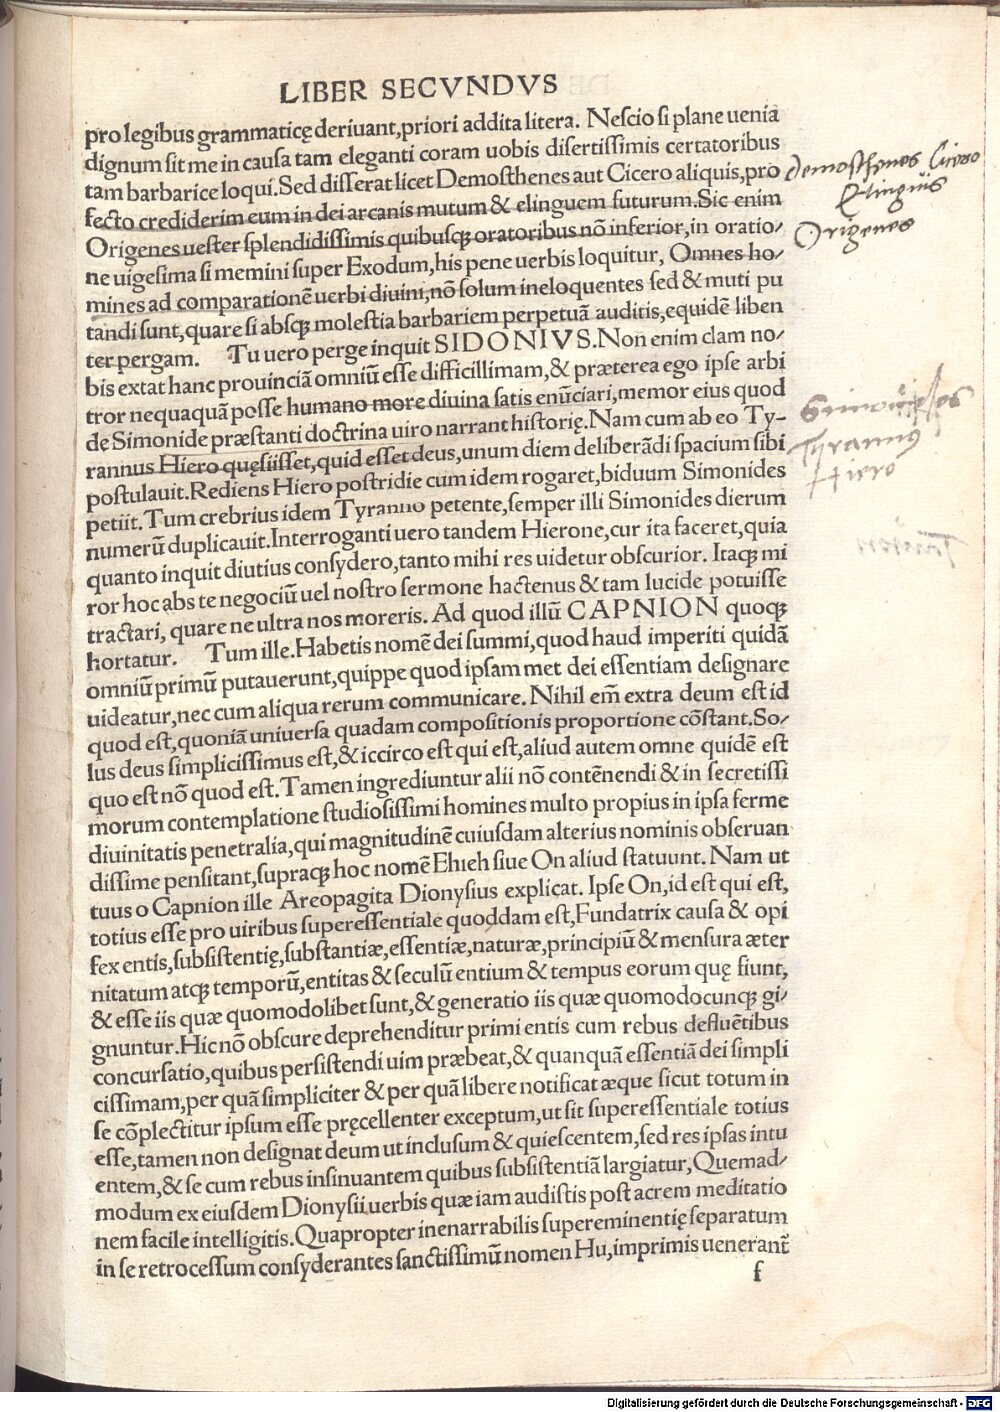 LIBER SECVNDVS
pro legibus grammaticę deriuant,priori addita litera. Neſcio ſi plane uenia
dignum ſit me in cauſa tam eleganti coram uobis diſertiſſimis certatoribus
tam barbarice loqui.Sed diſſerat licet Demoſthenes aut Cicero aliquis,pro
fecto crediderim eum in dei arcanis mutum & elinguem futurum.Sic enim
Origenes ueſter ſplendidiſſimis quibuſqȝ oratoribus nō inferior,in oratio/
ne uigeſima ſi memini ſuper Exodum,his pene uerbis loquitur, Omnes ho/
mines ad comparationē uerbi diuini,nō ſolum ineloquentes ſed & muti pu
tandi ſunt,quare ſi abſqȝ moleſtia barbariem perpetuā auditis,equidē liben
ter pergam. Tu uero perge inquit SIDONIVS.Non enim clam no/
bis extat hanc prouinciā omniū eſſe difficillimam,& præterea ego ipſe arbi
tror nequaquā poſſe humano more diuina ſatis enūciari,memor eius quod
dę Simonide præſtanti doctrina uiro narrant hiſtorię.Nam cum ab eo Ty-
rannus Hiero quęſiiſſet,quid eſſet deus,unum diem deliberādi ſpacium ſibi
poſtulauit.Rediens Hiero poſtridie cum idem rogaret,biduum Simonides
petiit.Tum crebrius idem Tyranno petente,ſemper illi Simonides dierum
numerū duplicauit.Interroganti uero tandem Hierone,cur ita faceret,quia
quanto inquit diutius conſydero,tanto mihi res uidetur obſcurior. Itaqȝ mi
ror hoc abs te negociū uel noſtro ſermone hactenus & tam lucide potuiſſe
tractari, quare ne ultra nos moreris. Ad quod illū CAPNION quoqȝ
hortatur. Tum ille.Habetis nomē dei ſummi,quod haud imperiti quidā
omniū primū putauerunt,quippe quod ipſam met dei eſſentiam deſignare
uideatur,nec cum aliqua rerum communicare. Nihil em̄ extra deum eſt id
quod eſt,quoniā uniuerſa quadam compoſitionis proportione cōſtant.So/
lus deus ſimpliciſſimus eſt,& iccirco eſt qui eſt,aliud autem omne quidē eſt
quo eſt nō quod eſt.Tamen ingrediuntur alii nō contēnendi & in ſecretiſſi
morum contemplatione ſtudioſiſſimi homines multo propius in ipſa ferme
diuinitatis penetralia,qui magnitudinē cuiuſdam alterius nominis obſeruan
diſſime penſitant,ſupraqȝ hoc nomē Ehieh ſiue On aliud ſtatuunt. Nam ut
tuus o Capnion ille Areopagita Dionyſius explicat. Ipſe On,id eſt qui eſt,
totius eſſe pro uiribus ſupereſſentiale quoddam eſt,Fundatrix cauſa & opi
fex entis,ſubſiſtentię,ſubſtantiæ,eſſentiæ,naturæ,principiū & menſura æter
nitatum atqȝ temporū,entitas & ſeculū entium & tempus eorum quę fiunt,
& eſſe iis quæ quomodolibet ſunt,& generatio iis quæ quomodocunqȝ gi/
gnuntur.Hic nō obſcure deprehenditur primi entis cum rebus defluētibus
concurſatio,quibus perſiſtendi uim præbeat,& quanquā eſſentiā dei ſimpli
ciſſimam,per quā ſimpliciter & per quā libere notificat æque ſicut totum in
ſe cōplectitur ipſum eſſe pręcellenter exceptum,ut ſit ſupereſſentiale totius
eſſe,tamen non deſignat deum ut incluſum & quieſcentem,ſed res ipſas intu
entem,& ſe cum rebus inſinuantem quibus ſubſiſtentiā largiatur,Quemad/
modum ex eiuſdem Dionyſii uerbis quæ iam audiſtis poſt acrem meditatio
nem facile intelligitis.Quapropter inenarrabilis ſupereminentię ſeparatum
in ſe retroceſſum conſyderantes ſanctiſſimū nomen Hu,imprimis uenerant̄
f
Demosthenes Cicero
Elinguis
Origenes
Simonides
Tyrannus
Hiero
Digitalisierung gefördert durch die Deutsche Forschungsgemeinschaft - DFG